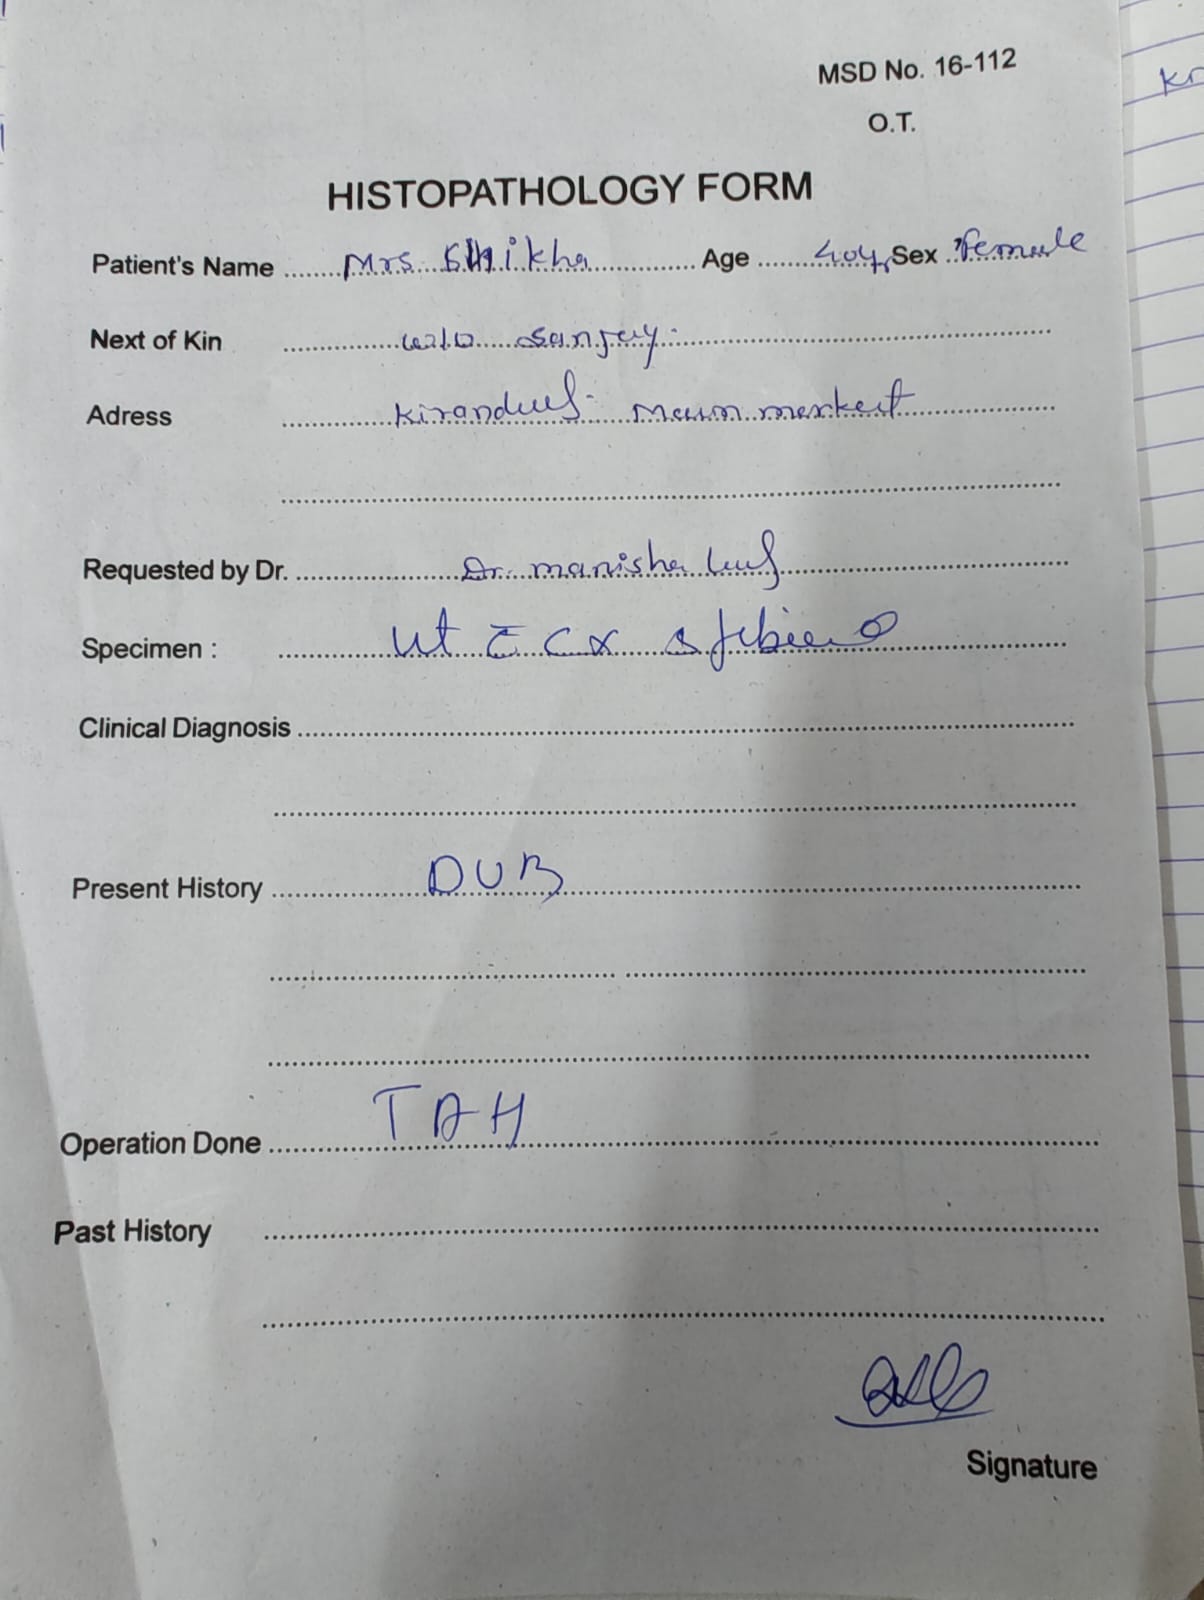 MSD No. 16-112
O.T.
HISTOPATHOLOGY FORM
Patient's Name Mrs Shikha Age 40y Sex Female
Next of Kin w/o Sanjay
Adress Kirandul Main market
Requested by Dr. Dr. manisha
Specimen : Ut c̄ Cx
Clinical Diagnosis
Present History DUB
Operation Done TAH
Past History
Signature